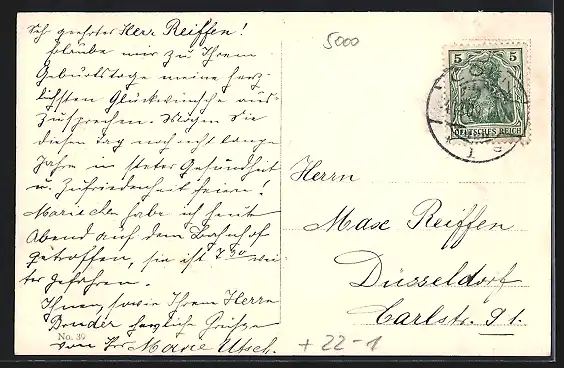 Sehr geehrter Herr Reiffen!
Erlaube mir zu Ihrem
Geburtstage meine herz-
lichsten Glückwünsche aus-
zusprechen. Mögen Sie
diesen Tag noch recht lange
Jahre in steter Gesundheit
u. Zufriedenheit feiern!
Mariechen habe ich heute
Abend auf dem Bahnhof
getroffen, sie ist 7 30 wei-
ter gefahren.
Ihnen, sowie Ihrem Herrn
Bruder herzlich Grüße
von Marie Utsch.
No. 39
5000
5 5
DEUTSCHES REICH
Herrn
Max Reiffen
Düsseldorf
Carlstr. 91.
+ 22-1